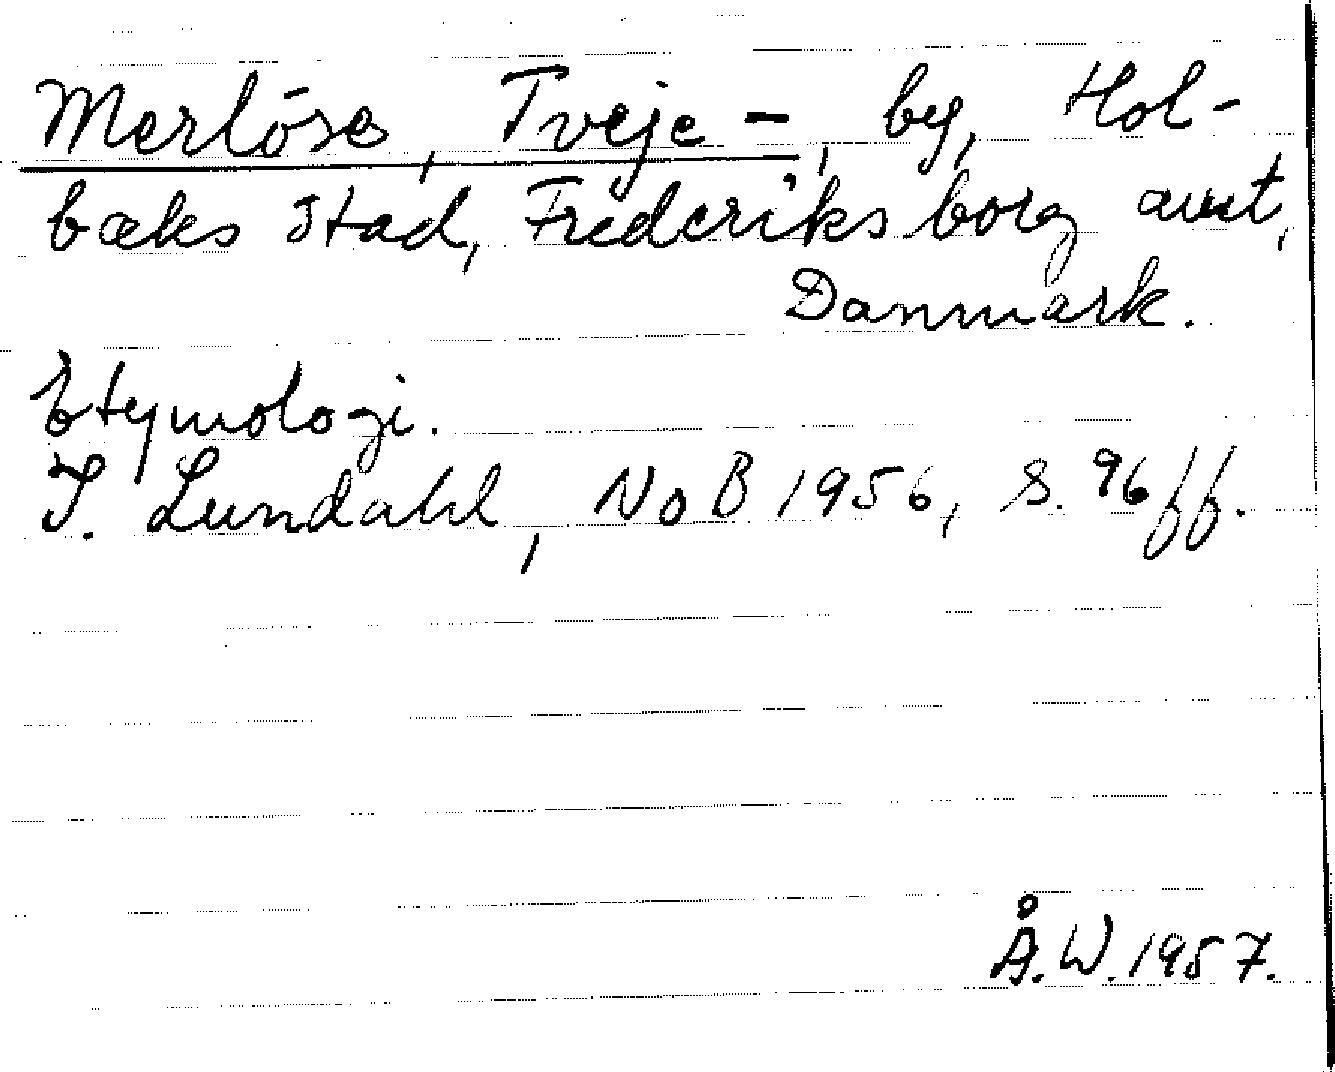 Merlöse, Tveje-, by, Hol-
bæks stad, Frederiksborg amt,
Danmark.
Etymologi.
I. Lundahl, NoB 1956, s. 96 ff.
Å. W. 1957.